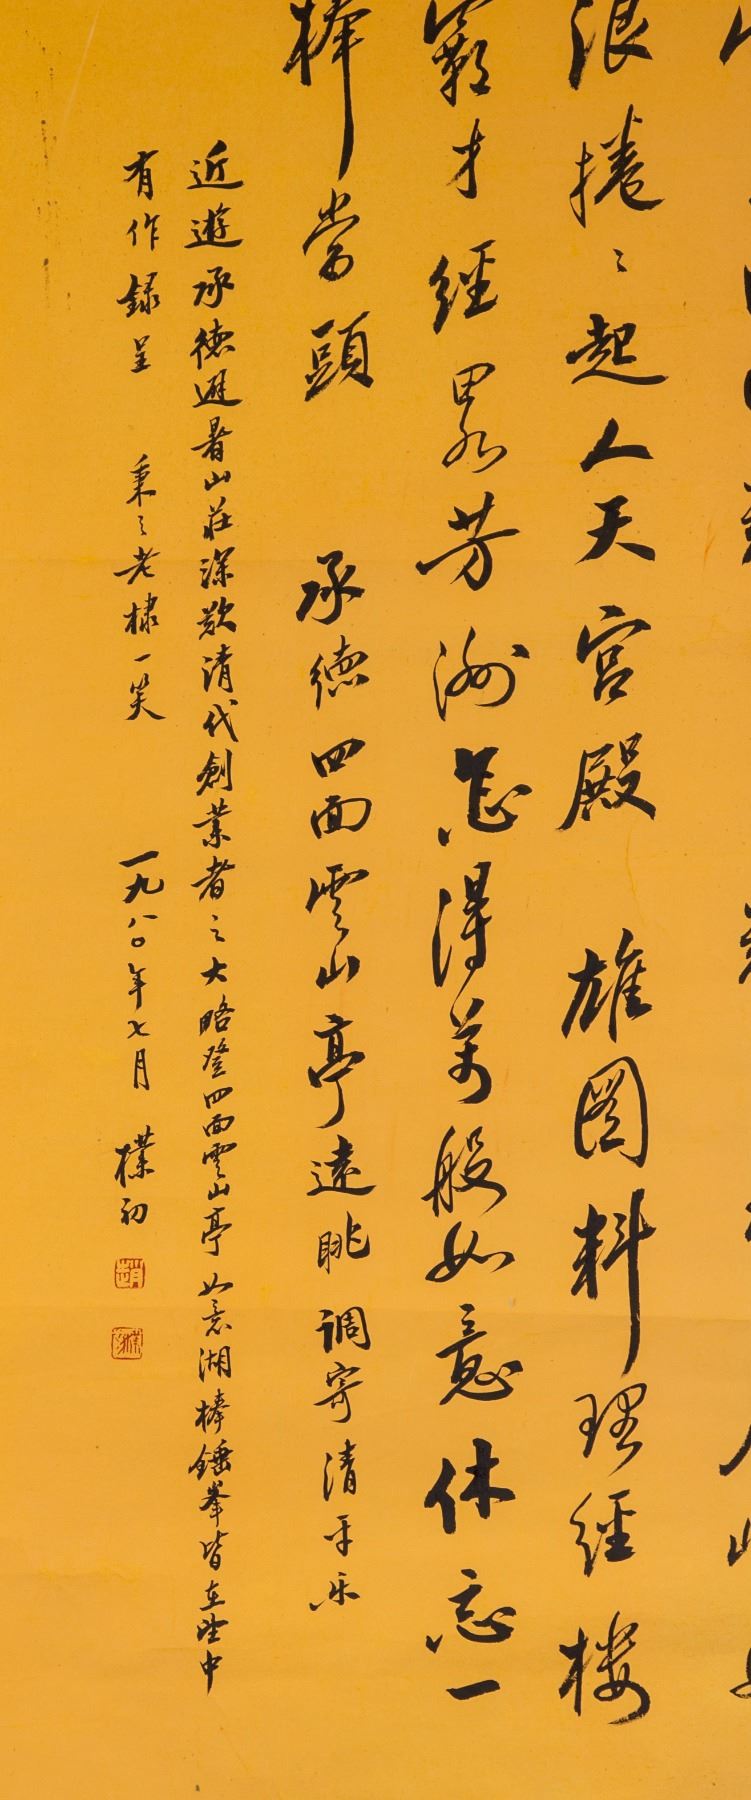 浪捲〻起人天宮殿　雄图料理经楼
霸才經畧芳洲怎得万般如意休忘一
棒當頭　承德四面雲山亭遠眺调寄清平乐
近遊承德避暑山莊深歎清代創業者之大略登四面雲山亭如意湖棒錘峯皆在望中
有作録呈　秉之老棣一笑　一九八〇年七月　樸初
趙
樸初